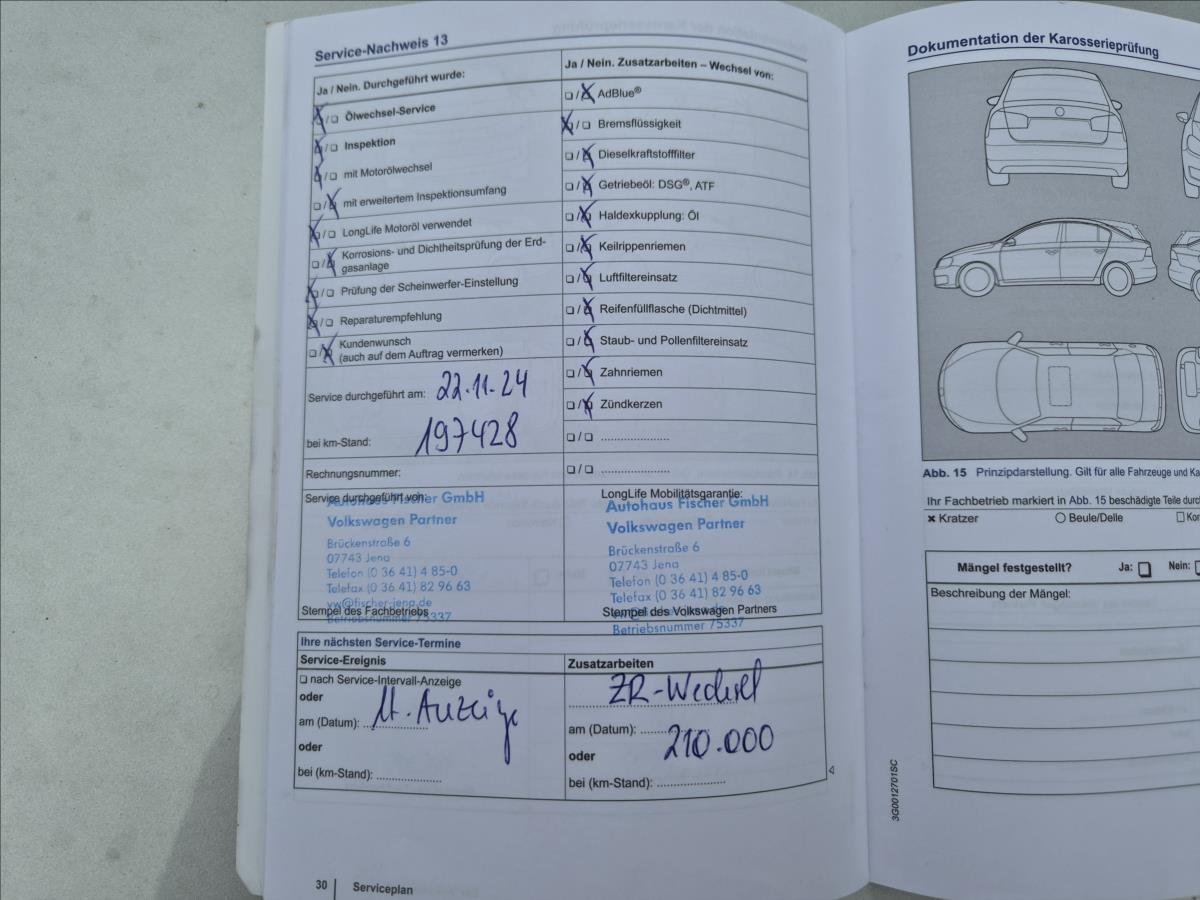 Service-Nachweis 13
Ja / Nein. Durchgeführt wurde:
❏ / ❏ Ölwechsel-Service
❏ / ❏ Inspektion
❏ / ❏ mit Motorölwechsel
❏ / ❏ mit erweitertem Inspektionsumfang
❏ / ❏ LongLife Motoröl verwendet
❏ / ❏ Korrosions- und Dichtheitsprüfung der Erd-
gasanlage
❏ / ❏ Prüfung der Scheinwerfer-Einstellung
❏ / ❏ Reparaturempfehlung
❏ / ❏ Kundenwunsch
(auch auf dem Auftrag vermerken)
Service durchgeführt am: 22.11.24
bei km-Stand: 197428
Rechnungsnummer:
Service durchgeführt von:
Autohaus Fischer GmbH
Volkswagen Partner
Brückenstraße 6
07743 Jena
Telefon (0 36 41) 4 85-0
Telefax (0 36 41) 82 96 63
vw@fischer-jena.de
Stempel des Fachbetriebs
Betriebsnummer 75337
Ja / Nein. Zusatzarbeiten – Wechsel von:
❏ / ❏ AdBlue®
❏ / ❏ Bremsflüssigkeit
❏ / ❏ Dieselkraftstofffilter
❏ / ❏ Getriebeöl: DSG®, ATF
❏ / ❏ Haldexkupplung: Öl
❏ / ❏ Keilrippenriemen
❏ / ❏ Luftfiltereinsatz
❏ / ❏ Reifenfüllflasche (Dichtmittel)
❏ / ❏ Staub- und Pollenfiltereinsatz
❏ / ❏ Zahnriemen
❏ / ❏ Zündkerzen
❏ / ❏ .....................
❏ / ❏ .....................
LongLife Mobilitätsgarantie:
Autohaus Fischer GmbH
Volkswagen Partner
Brückenstraße 6
07743 Jena
Telefon (0 36 41) 4 85-0
Telefax (0 36 41) 82 96 63
Stempel des Volkswagen Partners
Betriebsnummer 75337
Ihre nächsten Service-Termine
Service-Ereignis
❏ nach Service-Intervall-Anzeige
oder
am (Datum): lt. Anzeige
oder
bei (km-Stand): ....................
Zusatzarbeiten
ZR-Wechsel
am (Datum): ........ 210.000
oder
bei (km-Stand): .....................
30 Serviceplan
Dokumentation der Karosserieprüfung
Abb. 15 Prinzipdarstellung. Gilt für alle Fahrzeuge und
Ihr Fachbetrieb markiert in Abb. 15 beschädigte Teile
✖ Kratzer ○ Beule/Delle
Mängel festgestellt? Ja: ❏ Nein: ❏
Beschreibung der Mängel:
3G0012701SC